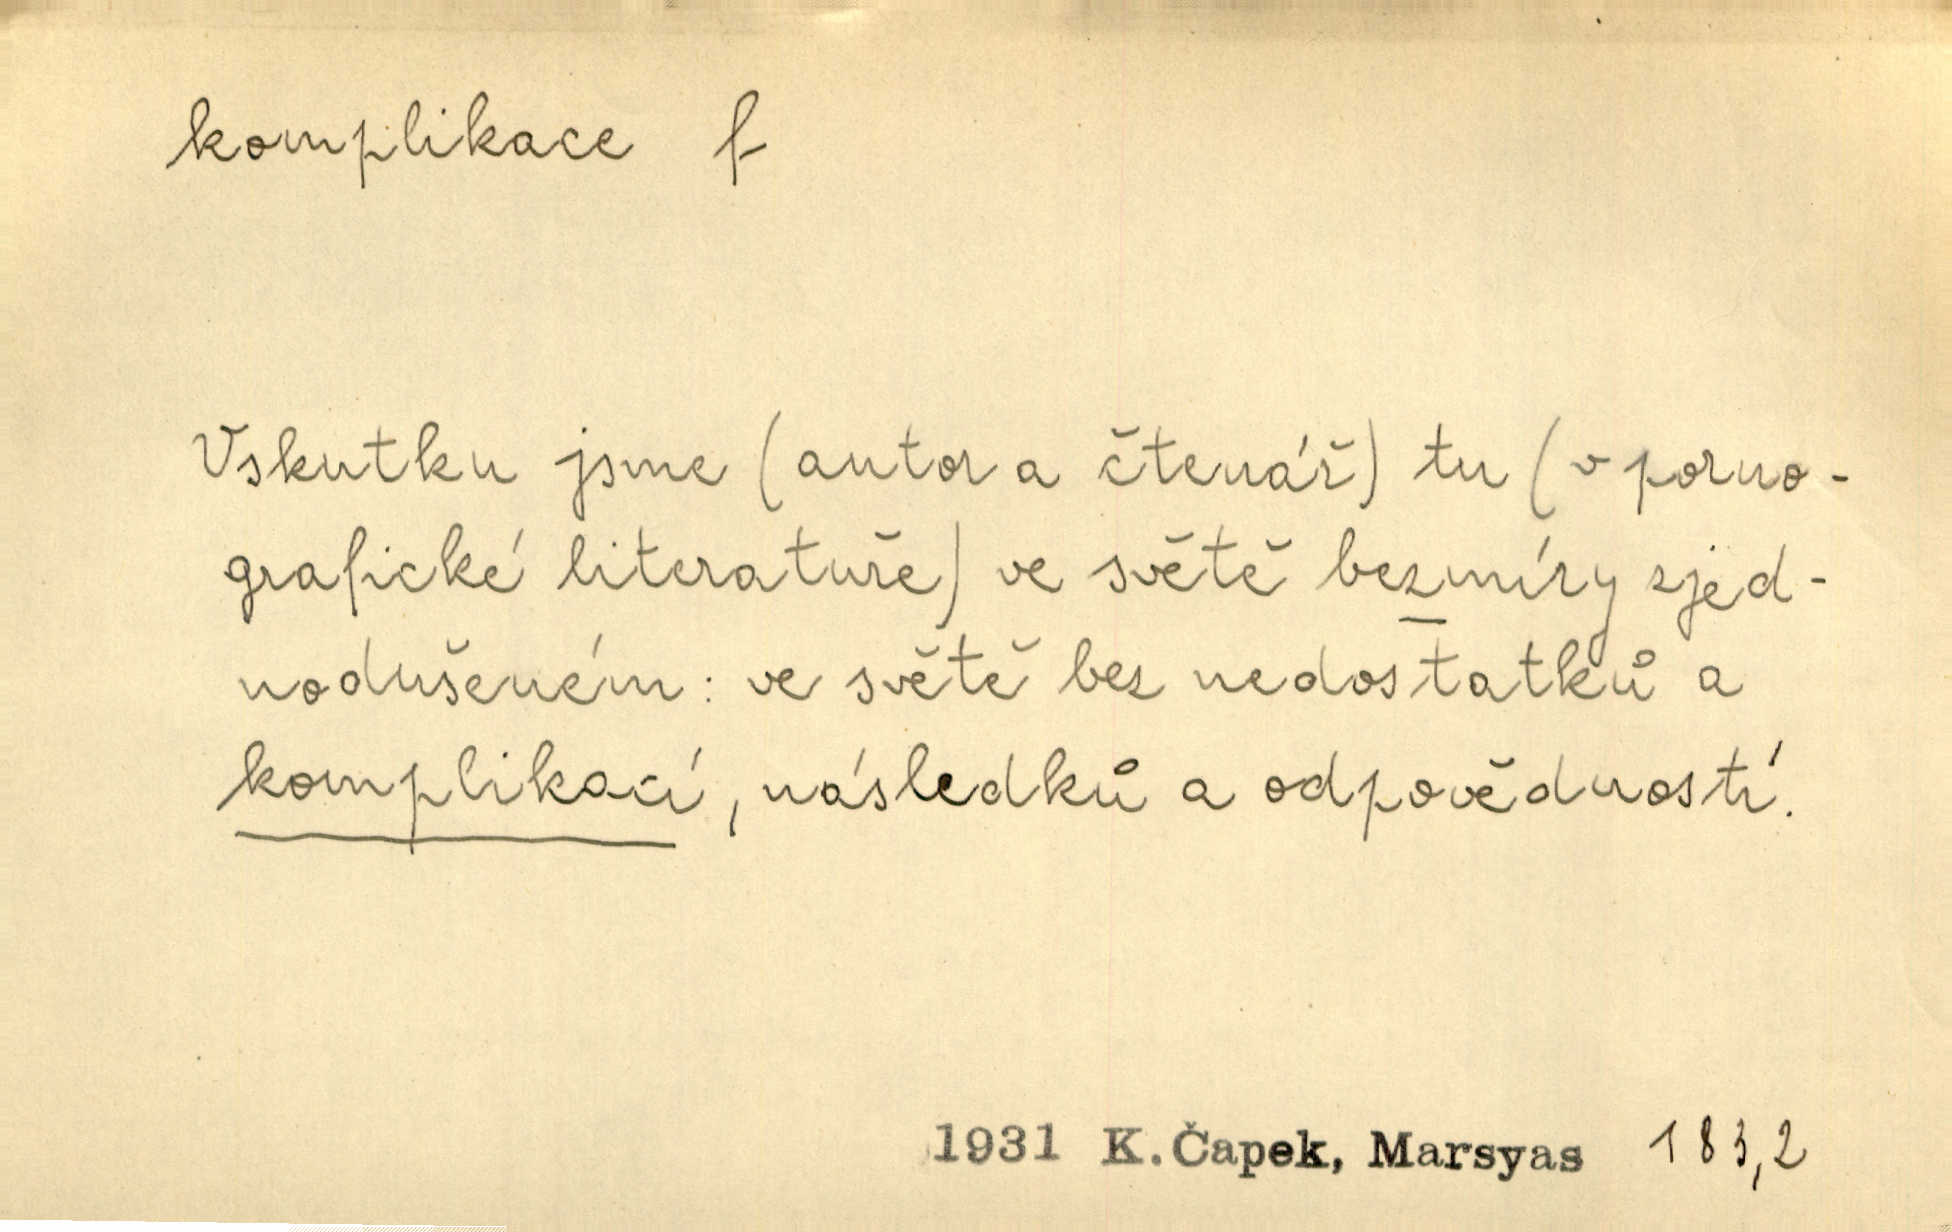 komplikace f
Vskutku jsme (autor a čtenář) tu (v porno-
grafické literatuře) ve světě bezmíry zjed-
nodušeném: ve světě bez nedostatků a
komplikací, následků a odpovědností.
1931 K. Čapek, Marsyas 183,2